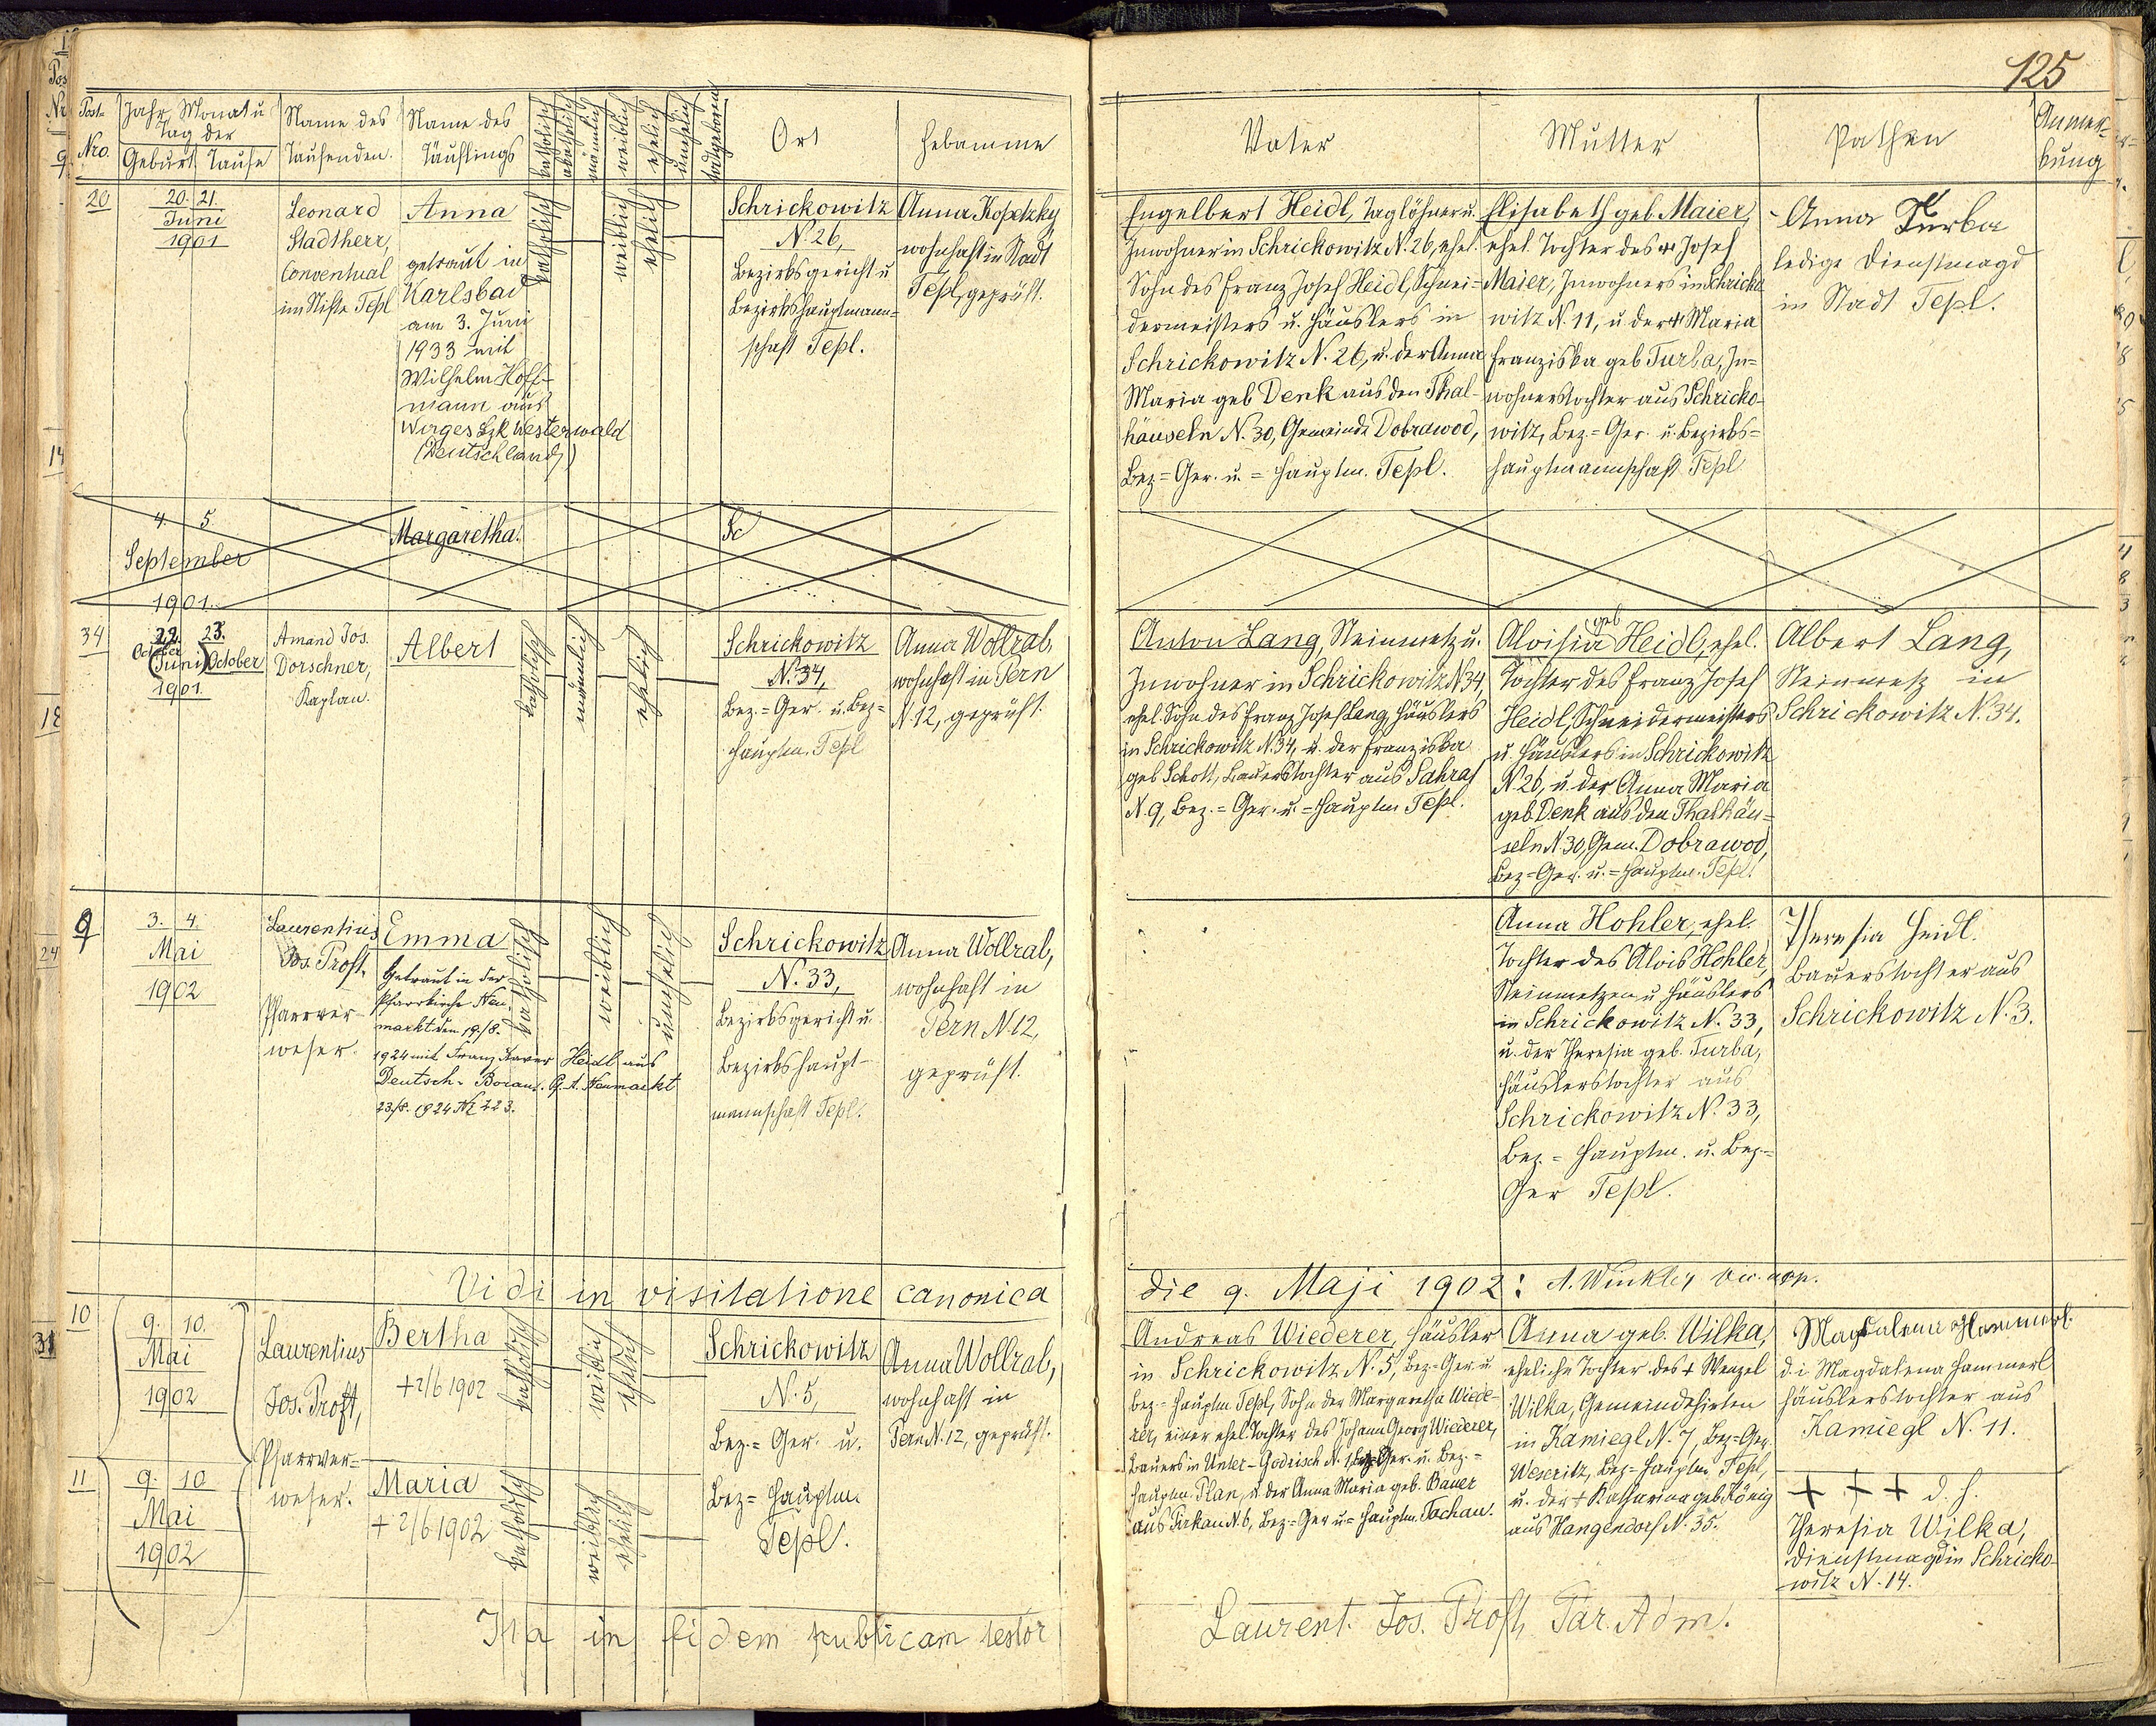 125
Post-
Nro.
Jahr, Monat u
Tag der
Geburt Taufe
Name des
Taufenden.
Name des
Täuflings
katholisch
akatholisch
männlich
weiblich
ehelich
unehelich
todtgeboren
Ort
Hebamme
Vater
Mutter
Pathen
Anmer-
kung
20
20. 21.
Juni
1901
Leonard
Stadtherr,
Conventual
im Stifte Tepl
Anna
getraut in
Karlsbad
am 3. Juni
1933 mit
Wilhelm Hoff-
mann aus
Wirges Bzk Westerwald
(Deutschland)
katholisch
weiblich
ehelich
Schrickowitz
N. 26,
Bezirksgericht u
Bezirkshauptmann-
schaft Tepl.
Anna Kopetzky
wohnhaft in Stadt
Tepl, geprüft.
Engelbert Heidl, Taglöhner u.
Inwohner in Schrickowitz N. 26, ehel.
Sohn des Franz Josef Heidl, Schnei-
dermeisters u. Häuslers in
Schrickowitz N. 26, u. der Anna
Maria geb Denk aus den Thal-
häuseln N. 30, Gemeinde Dobrawod,
Bez-Ger. u. = Hauptm. Tepl.
Elisabeth geb. Maier,
ehel. Tochter des + Josef
Maier, Inwohners in Schricko
witz N. 11, u der + Maria
Franziska geb Turba, In-
wohnerstochter aus Schricko-
witz, Bez.-Ger. u. Bezirks-
hauptmannschaft Tepl
Anna Turba
ledige Dienstmagd
in Stadt Tepl.
4. 5.
September
1901.
Margaretha.
Sc
34
22. 23.
October
(Juni) October
1901.
Amand Jos.
Dorschner,
Kaplan.
Albert
katholisch
männlich
ehelich
Schrickowitz
N. 34,
Bez.-Ger. u. Bez-
Hauptm. Tepl
Anna Wollrab,
wohnhaft in Pern
N. 12, geprüft.
Anton Lang, Steinmetz u.
Inwohner in Schrickowitz N. 34,
ehel. Sohn des Franz Josef Lang, Häuslers
in Schrickowitz N. 34, u. der Franziska
geb Schott, Bauerstochter aus Sahrat
N. 9, Bez.-Ger. u. = Hauptm Tepl.
geb
Aloisia Heidl, ehel.
Tochter des Franz Josef
Heidl, Schneidermeisters
u Häuslers in Schrickowitz
N 26, u der Anna Maria
geb Denk aus den Thalhäu-
seln N. 30, Gem. Dobrawod,
Bez-Ger. u. = Hauptm. Tepl.
Albert Lang,
Steinmetz in
Schrickowitz N. 34.
9
3. 4.
Mai
1902
Laurentius
Jos. Proft,
Pfarrver-
weser.
Emma
Getraut in der
Pfarrkirche Neu-
markt den 19./8.
1924 mit Franz Xaver Heidl aus
Deutsch-Borau. G. A. Neumarkt
23./8. 1924 No 223.
katholisch
weiblich
unehelich
Schrickowitz
N. 33,
Bezirksgericht u.
Bezirkshaupt-
mannschaft Tepl.
Anna Wollrab,
wohnhaft in
Pern N. 12,
geprüft.
Anna Hohler, ehel.
Tochter des Alois Hohler,
Steinmetzen u Häuslers
in Schrickowitz N. 33,
u. der Theresia geb. Turba,
Häuslerstochter aus
Schrickowitz N. 33,
Bez.-Hauptm. u. Bez.-
Ger Tepl.
Theresia Heidl.
Bauerstochter aus
Schrickowitz N. 3.
Vidi in visitatione canonica
die 9. Maji 1902: A. Winkler
10
9. 10.
Mai
1902
Laurentius
Jos. Proft,
Pfarrver-
weser.
Bertha
+ 2/6 1902
katholisch
weiblich
ehelich
Schrickowitz
N. 5,
Bez.-Ger. u.
Bez-Hauptm.
Tepl.
Anna Wollrab,
wohnhaft in
Pern N. 12, geprüft.
Andreas Wiederer, Häusler
in Schrickowitz N. 5, Bez-Ger. u
Bez-Hauptm Tepl, Sohn der Margaretha Wiede-
rer, einer ehel. Tochter des Johann Georg Wiederer,
Bauers in Unter-Godrisch N. 1, Bez-Ger. u. Bez.-
Hauptm. Plan, u. der Anna Maria geb. Bauer
aus Pirkau N. 6, Bez-Ger u = Hauptm. Tachau.
Anna geb. Wilka,
eheliche Tochter des + Wenzel
Wilka, Gemeindehirten
in Kamiegl N. 7, Bez-Ger
Weseritz, Bez-Hauptm. Tepl,
u. der + Katharina geb. König
aus Hangendorf N. 35.
Magdalena Hammerl.
d. i Magdalena Hammerl
Häuslerstochter aus
Kamiegl N. 11.
11
9. 10
Mai
1902
Maria
+ 2/6 1902
katholisch
weiblich
ehelich
+ + + d. h.
Theresia Wilka,
Dienstmagd in Schricko-
witz N. 14.
Ita in fidem publicam testor
Laurent. Jos. Proft, Par. Adm.